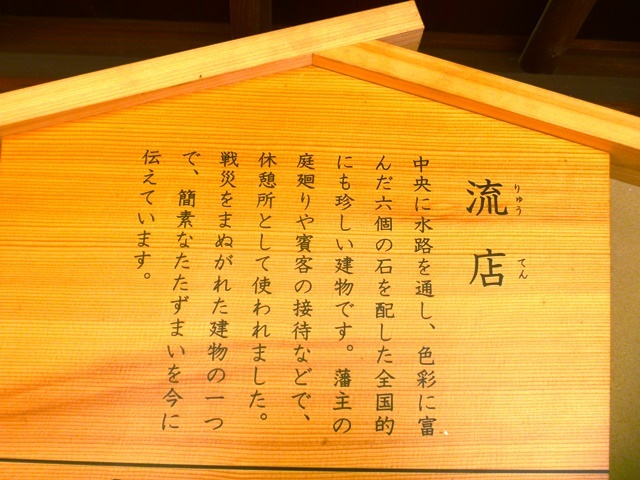 流店
りゅうてん
中央に水路を通し、色彩に富
んだ六個の石を配した全国的
にも珍しい建物です。藩主の
庭廻りや賓客の接待などで、
休憩所として使われました。
戦災をまぬがれた建物の一つ
で、簡素なたたずまいを今に
伝えています。